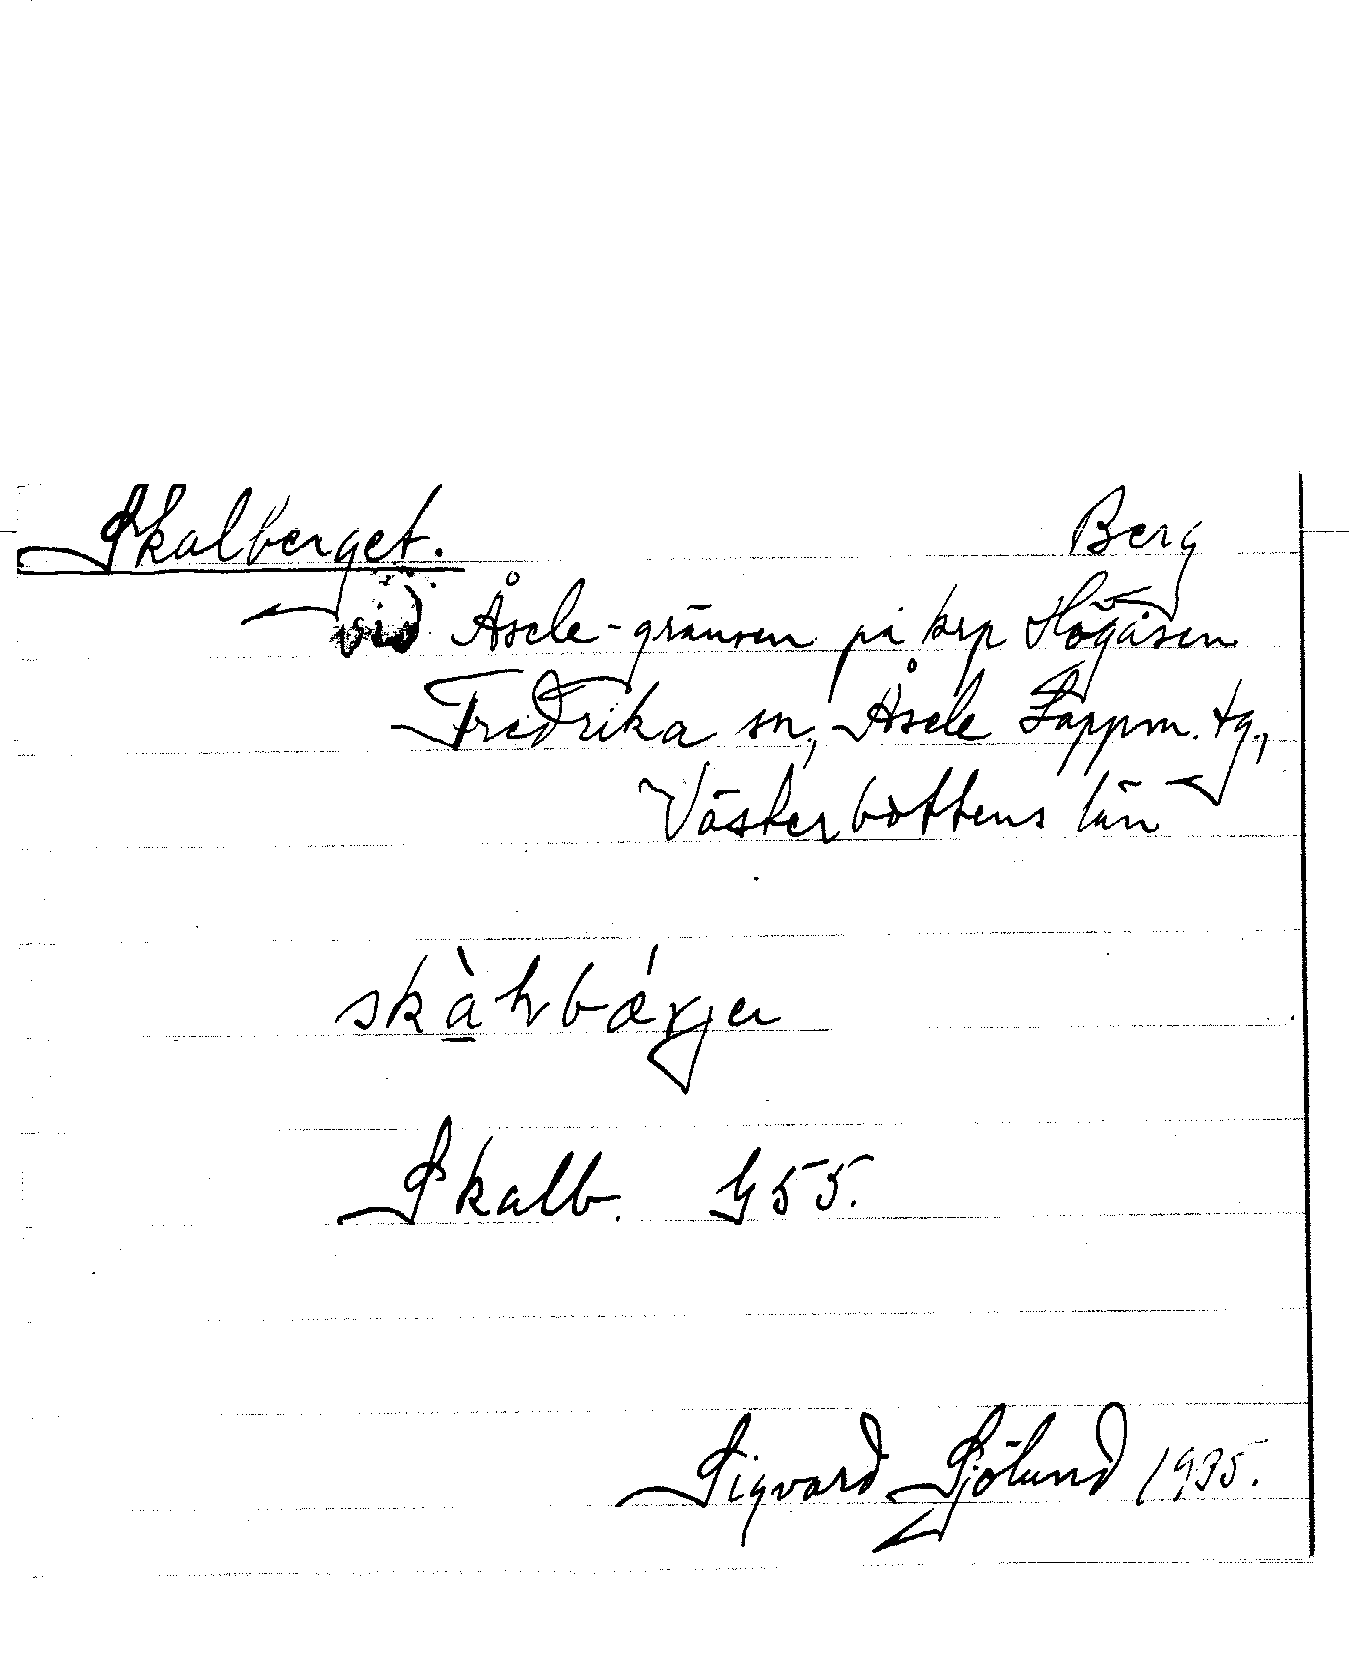 Skalberget. Berg
vid Åsele-gränsen på krp Högåsen
Fredrika sn, Åsele Lappm. tg.,
Västerbottens län
Skalb. G 55.
Sigvard Sjölund 1935.